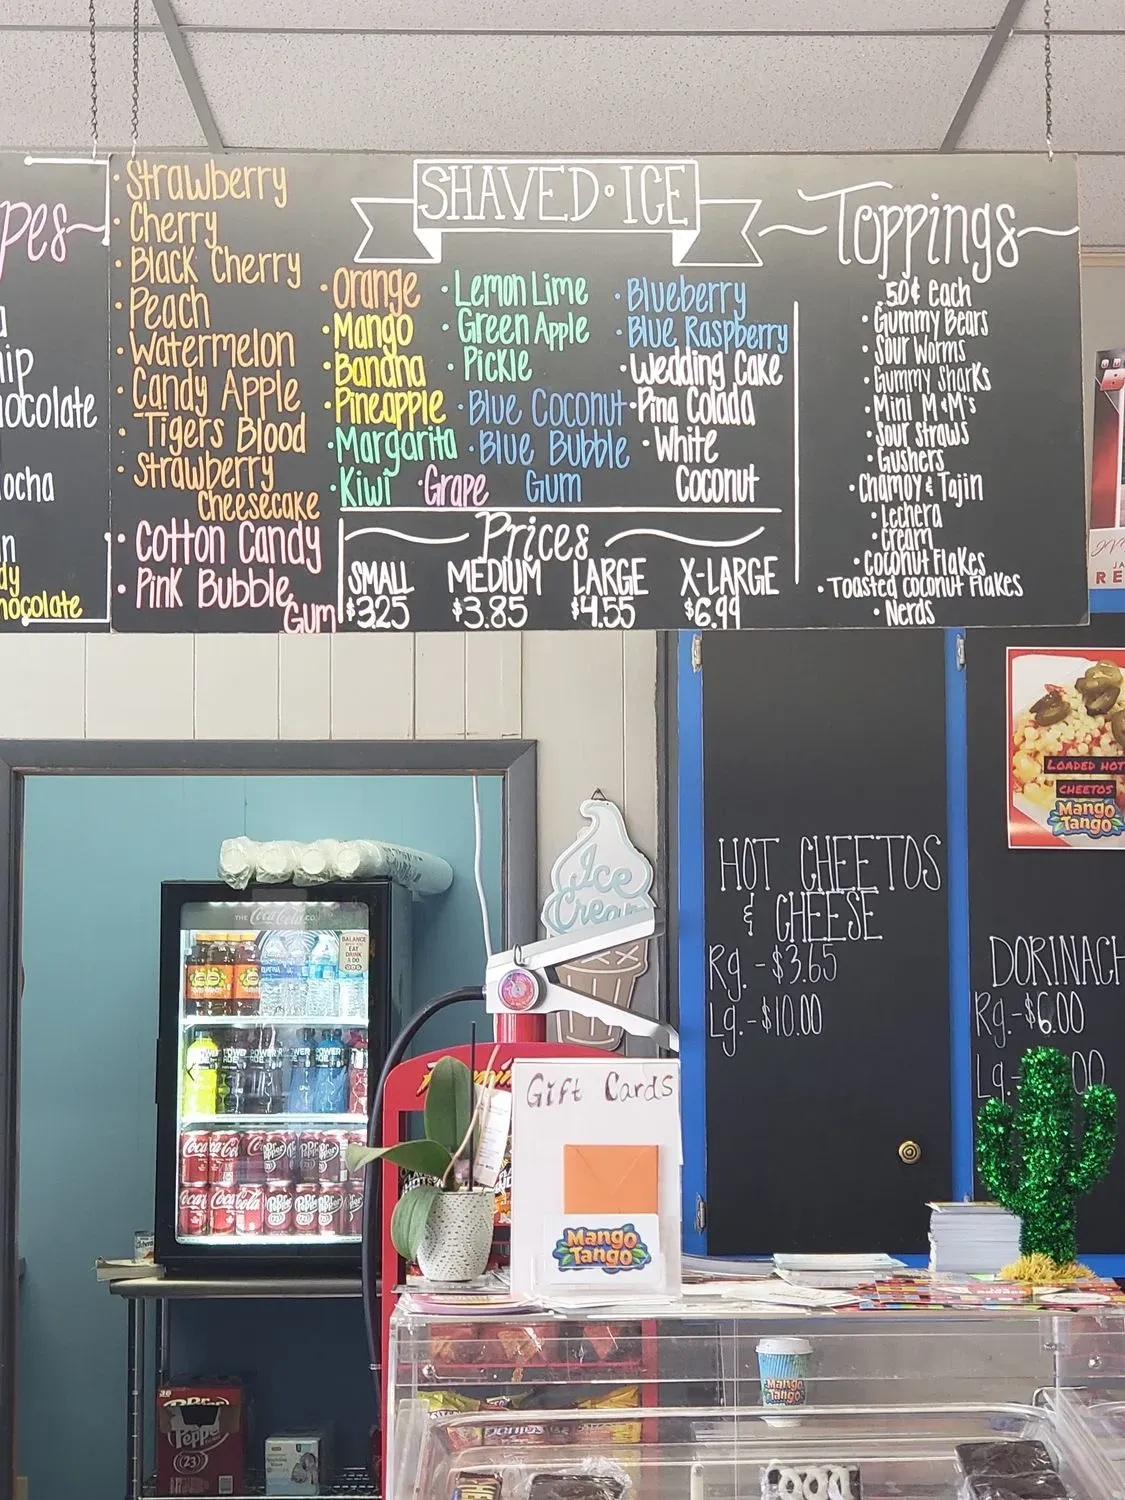 pes
hip
hocolate
ocha
hocolate
• Strawberry
• Cherry
• Black Cherry
• Peach
• Watermelon
• Candy Apple
• Tigers Blood
• Strawberry
Cheesecake
• Cotton Candy
• Pink Bubble
Gum
SHAVED ICE
• Orange
• Mango
• Banana
• Pineapple
• Margarita
• Kiwi
• Grape
• Lemon Lime
• Green Apple
• Pickle
• Blue Coconut
• Blue Bubble
Gum
• Blueberry
• Blue Raspberry
• Wedding Cake
• Pina Colada
• White
Coconut
Prices
SMALL MEDIUM LARGE X-LARGE
$3.25 $3.85 $4.55 $6.99
Toppings
.50¢ Each
• Gummy Bears
• Sour Worms
• Gummy Sharks
• Mini M&M's
• Sour Straws
• Gushers
• Chamoy & Tajin
• Lechera
• Cream
• Coconut Flakes
• Toasted Coconut Flakes
• Nerds
LOADED HOT
CHEETOS
Mango
Tango
HOT CHEETOS
& CHEESE
Rg. - $3.65
Lg. - $10.00
DORINACH
Rg - $6.00
Lg -
00
Ice
Cream
THE Coca-Cola CO.
BALANCE
EAT
DRINK
& DO
POWER
ADE
Coca-Cola
Dr Pepper
23
Gift Cards
Mango
Tango
Mango
Tango
Dr Pepper
23
Doritos